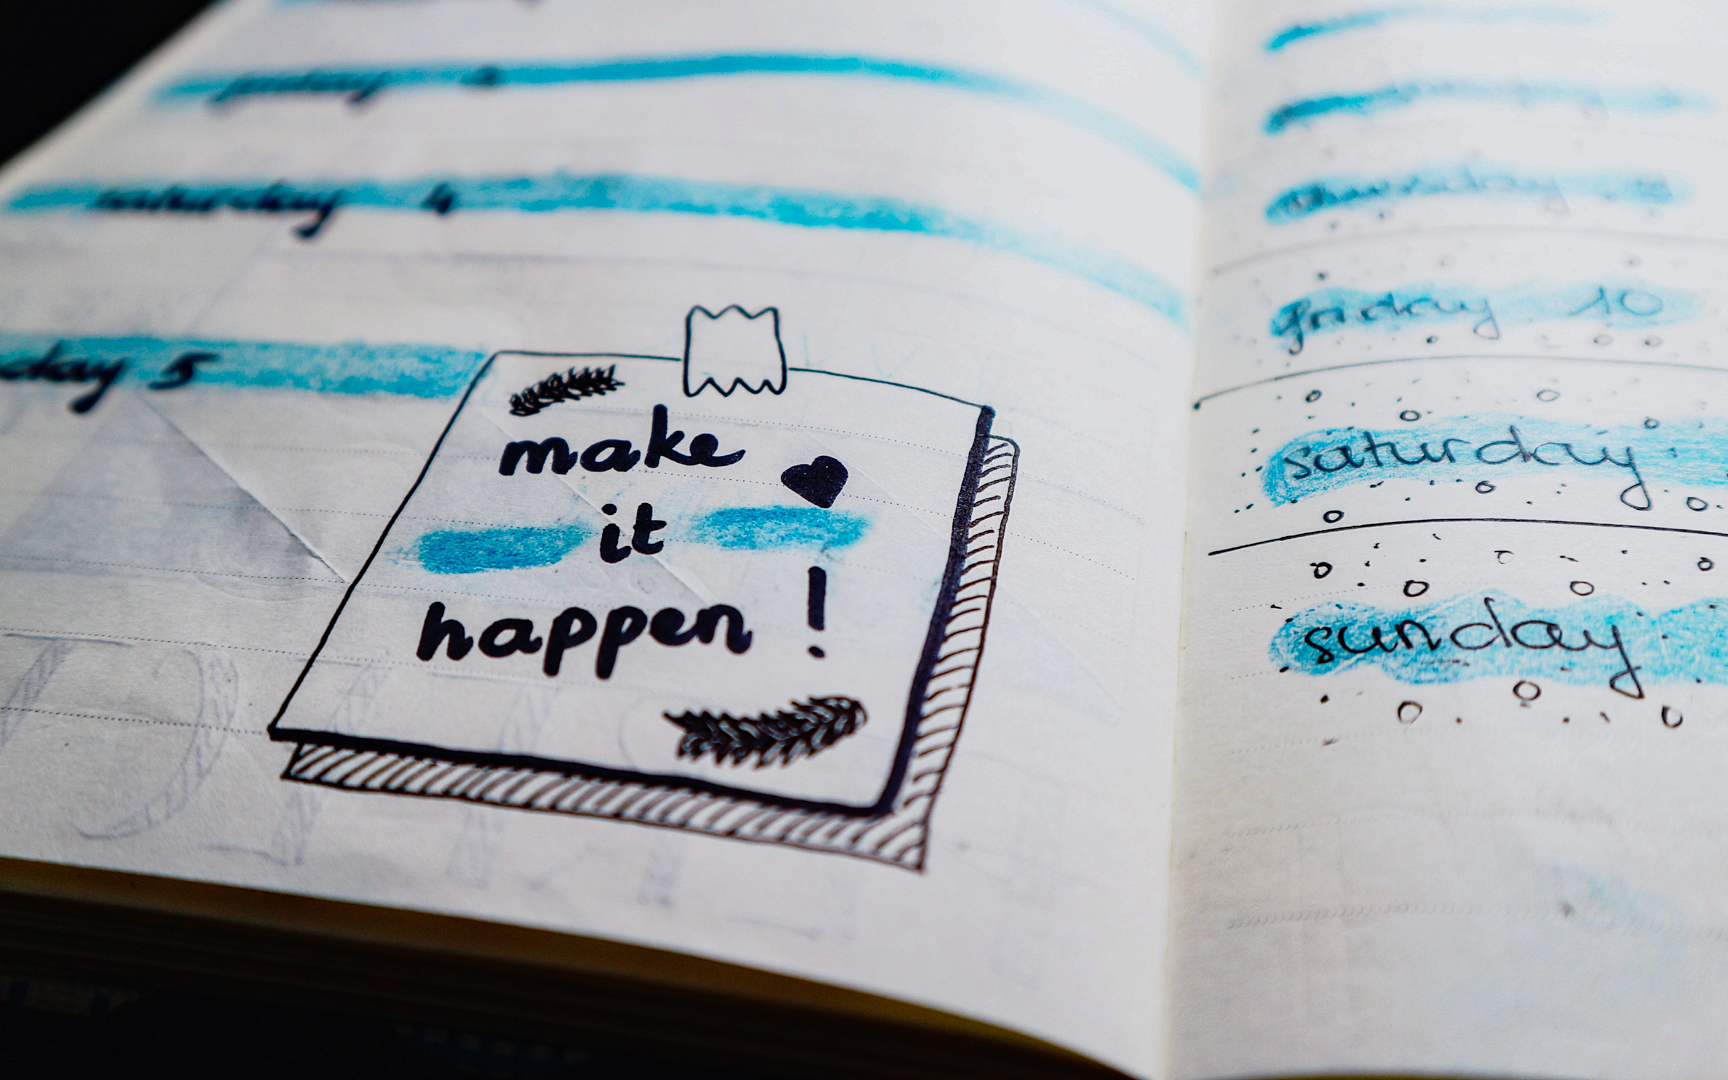 friday 3
saturday 4
day 5
make
it
happen!
thursday 9
friday 10
saturday
sunday